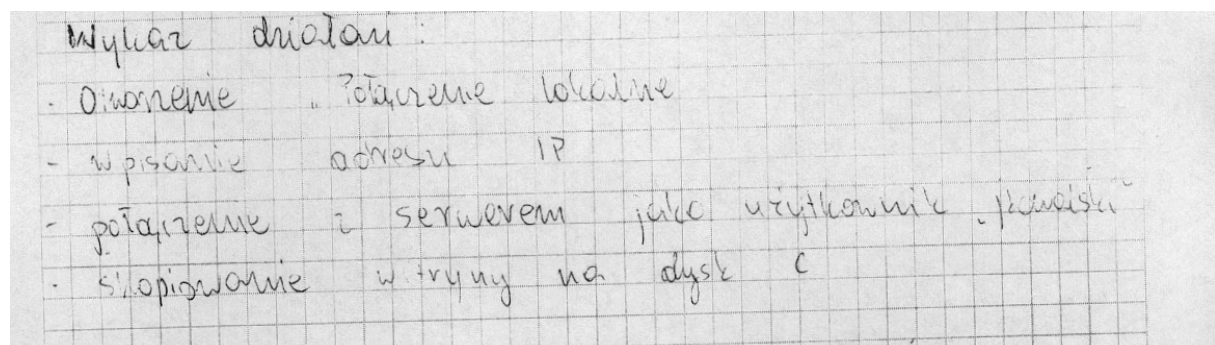 Wykaz działań:
- Otworzenie "Połączenie lokalne
- wpisanie adresu IP
- połączenie z serwerem jako użytkownik "jkowalski"
- skopiowanie witryny na dysk C